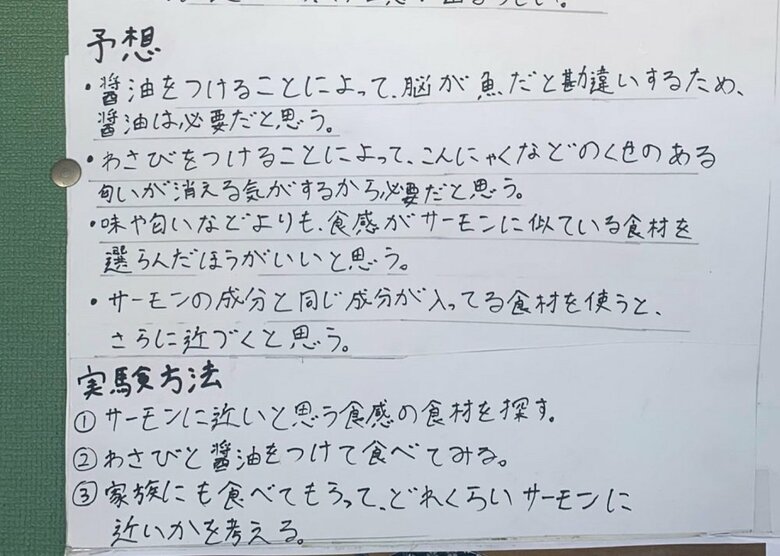 予想
・醤油をつけることによって、脳が魚だと勘違いするため、
醤油は必要だと思う。
・わさびをつけることによって、こんにゃくなどのくせのある
匂いが消える気がするから必要だと思う。
・味や匂いなどよりも、食感がサーモンに似ている食材を
選らんだほうがいいと思う。
・サーモンの成分と同じ成分が入ってる食材を使うと、
さらに近づくと思う。
実験方法
①サーモンに近いと思う食感の食材を探す。
②わさびと醤油をつけて食べてみる。
③家族にも食べてもらって、どれくらいサーモンに
近いかを考える。